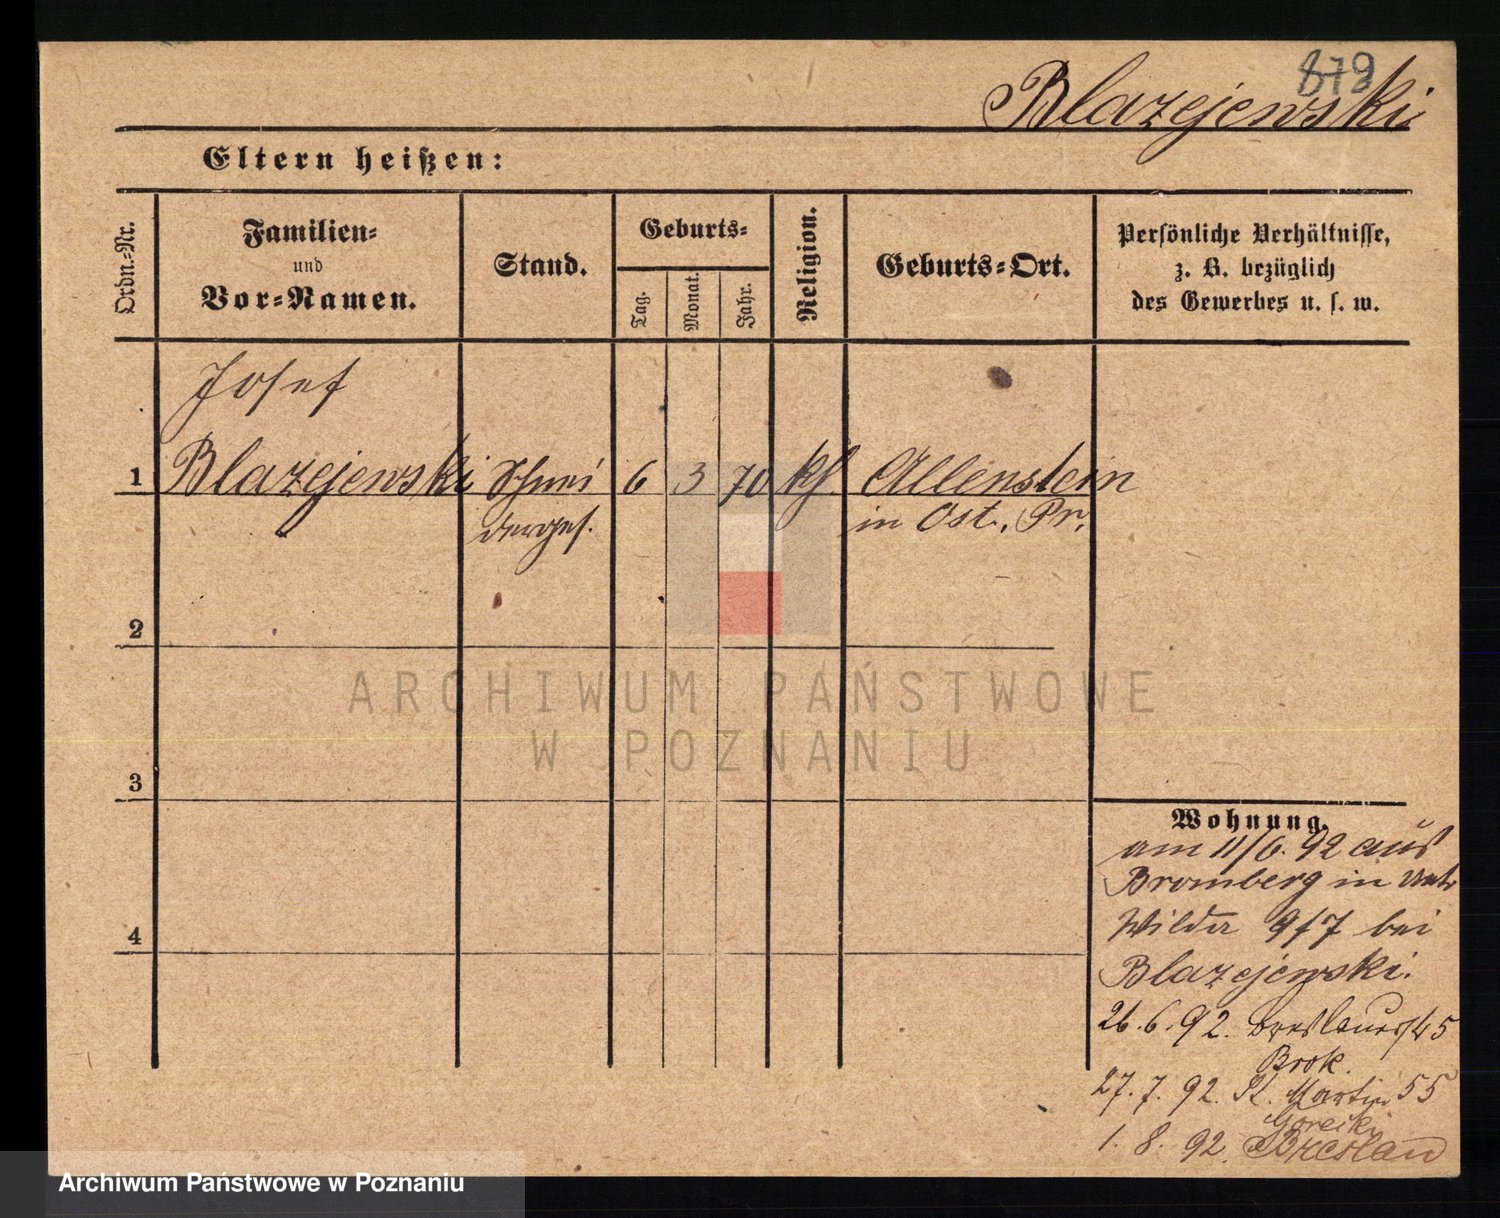 879
Blazejewski
Eltern heißen:
Ordn.-Nr.
Familien-
und
Vor-Namen.
Stand.
Geburts-
Tag.
Monat.
Jahr.
Religion.
Geburts-Ort.
Persönliche Verhältnisse,
z. B. bezüglich
des Gewerbes u. s. w.
Josef
1 Blazejewski Schnei 6 3 70 kh. Allenstein
derges. in Ost. Pr.
2
3
4
ARCHIWUM PAŃSTWOWE
W POZNANIU
Wohnung.
am 11/6. 92 aus
Bromberg in Unt
Wilda 9/7 bei
Blazejewski.
26.6.92. Breslauerstr 5
Brok.
27.7.92. St. Martin 55
Gorecki
1.8.92. Breslau
Archiwum Państwowe w Poznaniu